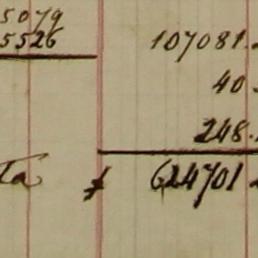 5079
5526
107081.
40.
248.
ta $ 624701